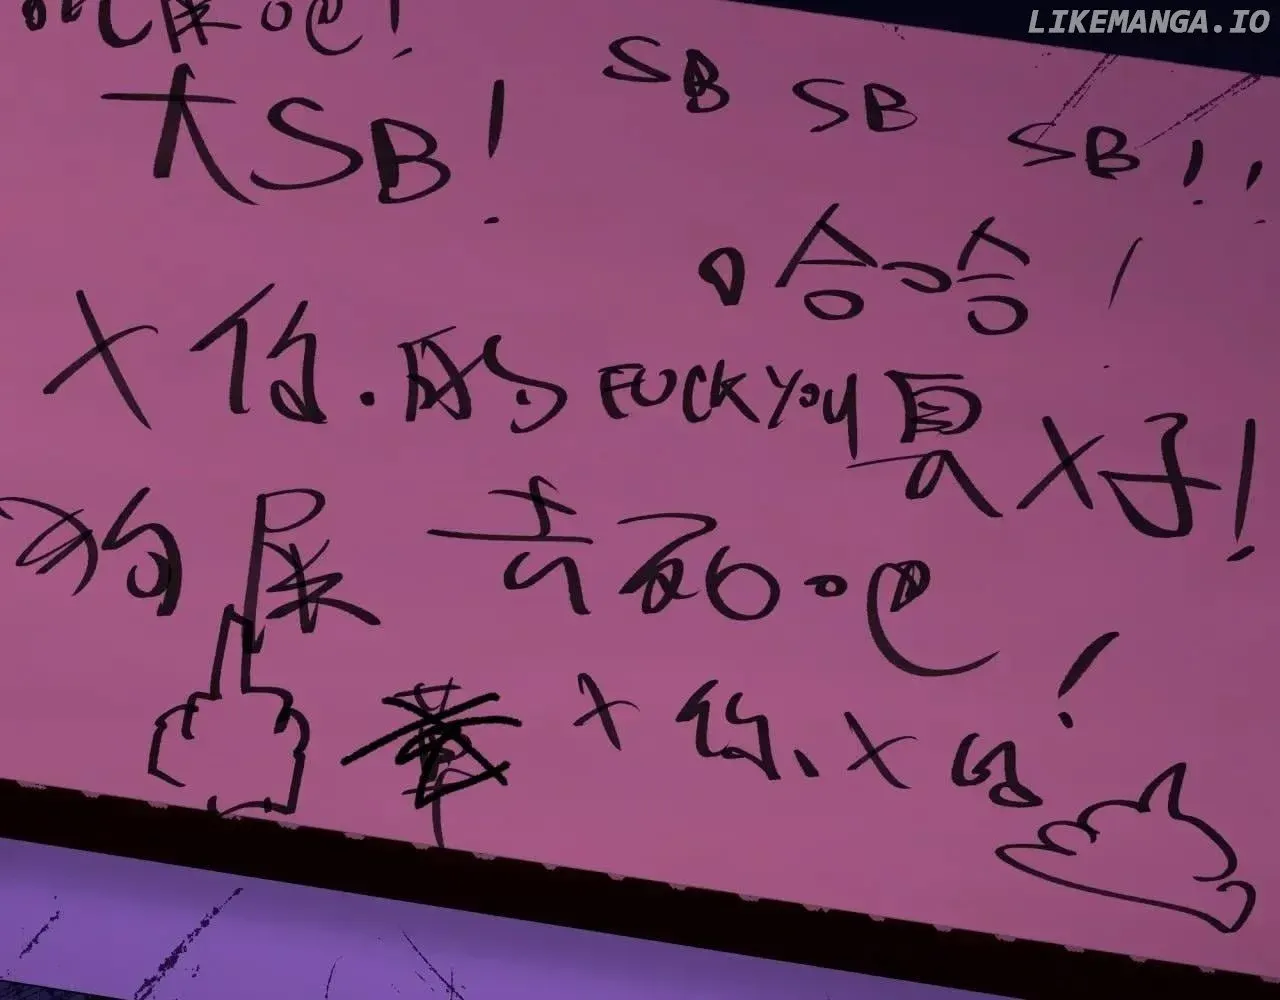 LIKEMANGA.IO
吃屎吧!
大SB!
SB SB SB!!
哈哈!
X你.的FUCK you 臭X子!
狗屎 去死吧!
X你、X的